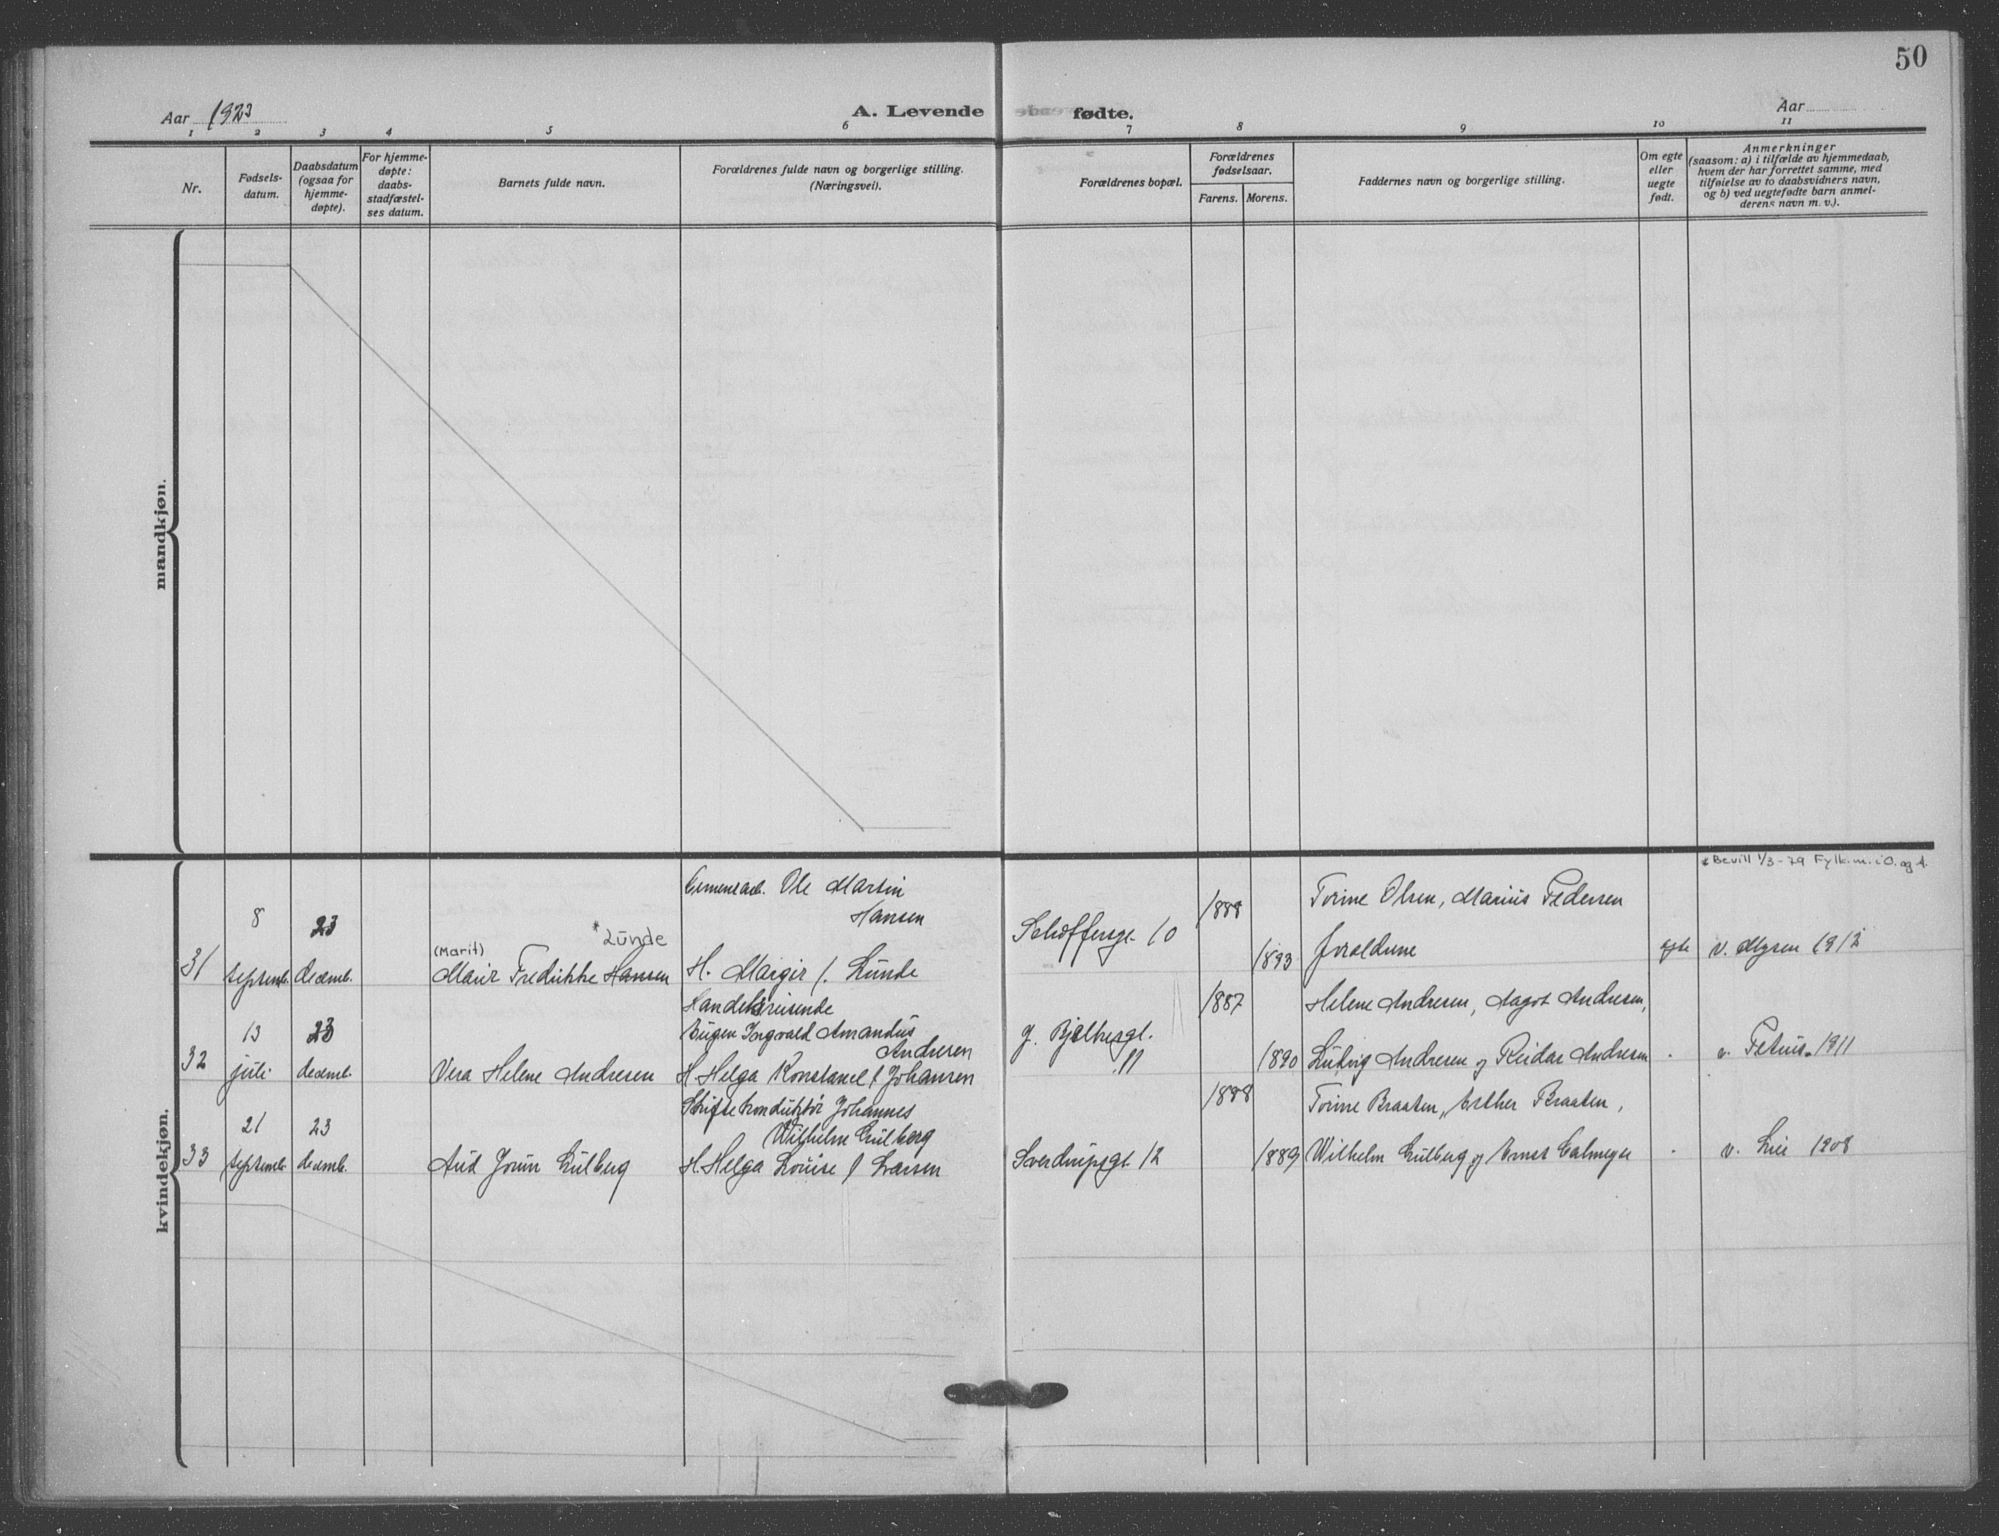 50
Aar 1923
A. Levende fødte.
Aar
1 2 3 4 5 6 7 8 9 10 11
Nr.
Fødsels-
datum.
Daabsdatum
(ogsaa for
hjemme-
døpte).
For hjemme-
døpte:
daabs-
stadfæstel-
ses datum.
Barnets fulde navn.
Forældrenes fulde navn og borgerlige stilling.
(Næringsvei).
Forældrenes bopæl.
Forældrenes
fødselsaar.
Farens. Morens.
Faddernes navn og borgerlige stilling.
Om egte
eller
uegte
født.
Anmerkninger
(saasom: a) i tilfælde av hjemmedaab,
hvem der har forrettet samme, med
tilføielse av to daabsvidners navn,
og b) ved uegtefødte barn anmel-
derens navn m. v.).
mandkjøn.
kvindekjøn.
* Bevill 1/3-79 Fylk.m. i O. og A.
31
8
septemb.
23
decemb.
(Marit)
* Lunde
Marit Fredrikke Hansen
Ole Martin
Hansen
H. Margit f. Lunde
Schøffersgt. 10
1888
1893
Torine Olsen, Marius Pedersen
forældrene
egte
v. Mysen 1912
32
13
juli
23
decemb.
Vera Helene Andresen
Handelsreisende
Eugen Ingvald Amandus
Andresen
H. Helga Konstance f Johansen
J. Bjelkesgt.
11
1887
1890
Helene Andresen, Aagot Andresen,
Ludvig Andresen og Reidar Andresen
v. Petrus. 1911
33
21
septemb.
23
decemb.
Aud Jorun Gulberg
Skiftekonduktør Johannes
Wilhelm Gulberg
H. Helga Louise f Larsen
Sverdrupsgt 12
1888
1889
Torine Braaten, Esther Braaten,
Wilhelm Gulberg og Ernst Calmeyer
v. Lier 1908